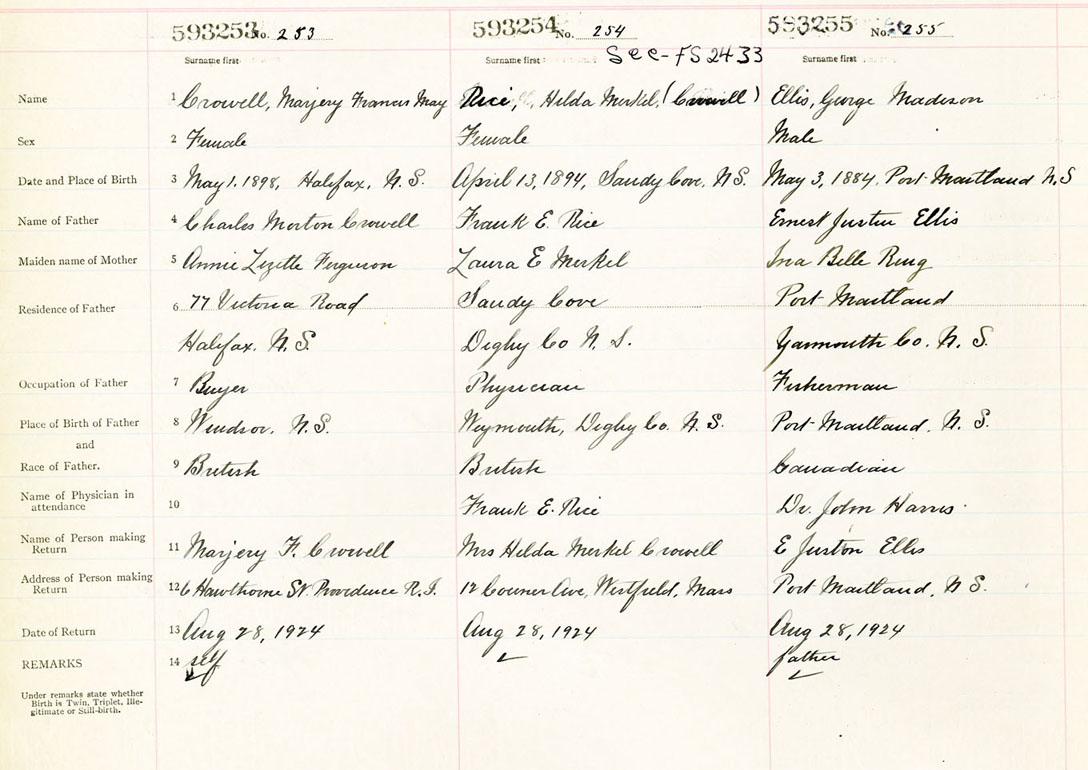 593253 No. 253 593254 No. 254 593255 No. 255
See-FS 2433
Surname first Surname first Surname first
Name 1 Crowell, Marjery Francis May Rice, Hilda Merkel, (Crowell) Ellis, George Madison
Sex 2 Female Female Male
Date and Place of Birth 3 May 1. 1898, Halifax, N.S. April 13, 1894, Sandy Cove, N.S. May 3, 1884, Port Maitland N.S
Name of Father 4 Charles Morton Crowell Frank E. Rice Ernest Justin Ellis
Maiden name of Mother 5 Annie Lezette Ferguson Laura E Merkel Ina Belle Ring
Residence of Father 6 77 Victoria Road Sandy Cove Port Maitland
Halifax. N.S. Digby Co N.S. Yarmouth Co. N.S.
Occupation of Father 7 Buyer Physician Fisherman
Place of Birth of Father 8 Windsor. N.S. Weymouth, Digby Co. N.S. Port Maitland, N.S.
and
Race of Father. 9 British British Canadian
Name of Physician in
attendance 10 Frank E. Rice Dr. John Harris
Name of Person making
Return 11 Marjery F. Crowell Mrs Hilda Merkel Crowell E Juston Ellis
Address of Person making
Return 12 6 Hawthorne St. Providence R.I. 12 Ave, Westfield, Mass Port Maitland, N.S.
Date of Return 13 Aug 28, 1924 Aug 28, 1924 Aug 28, 1924
REMARKS 14 self father
Under remarks state whether
Birth is Twin, Triplet, Ille-
gitimate or Still-birth.